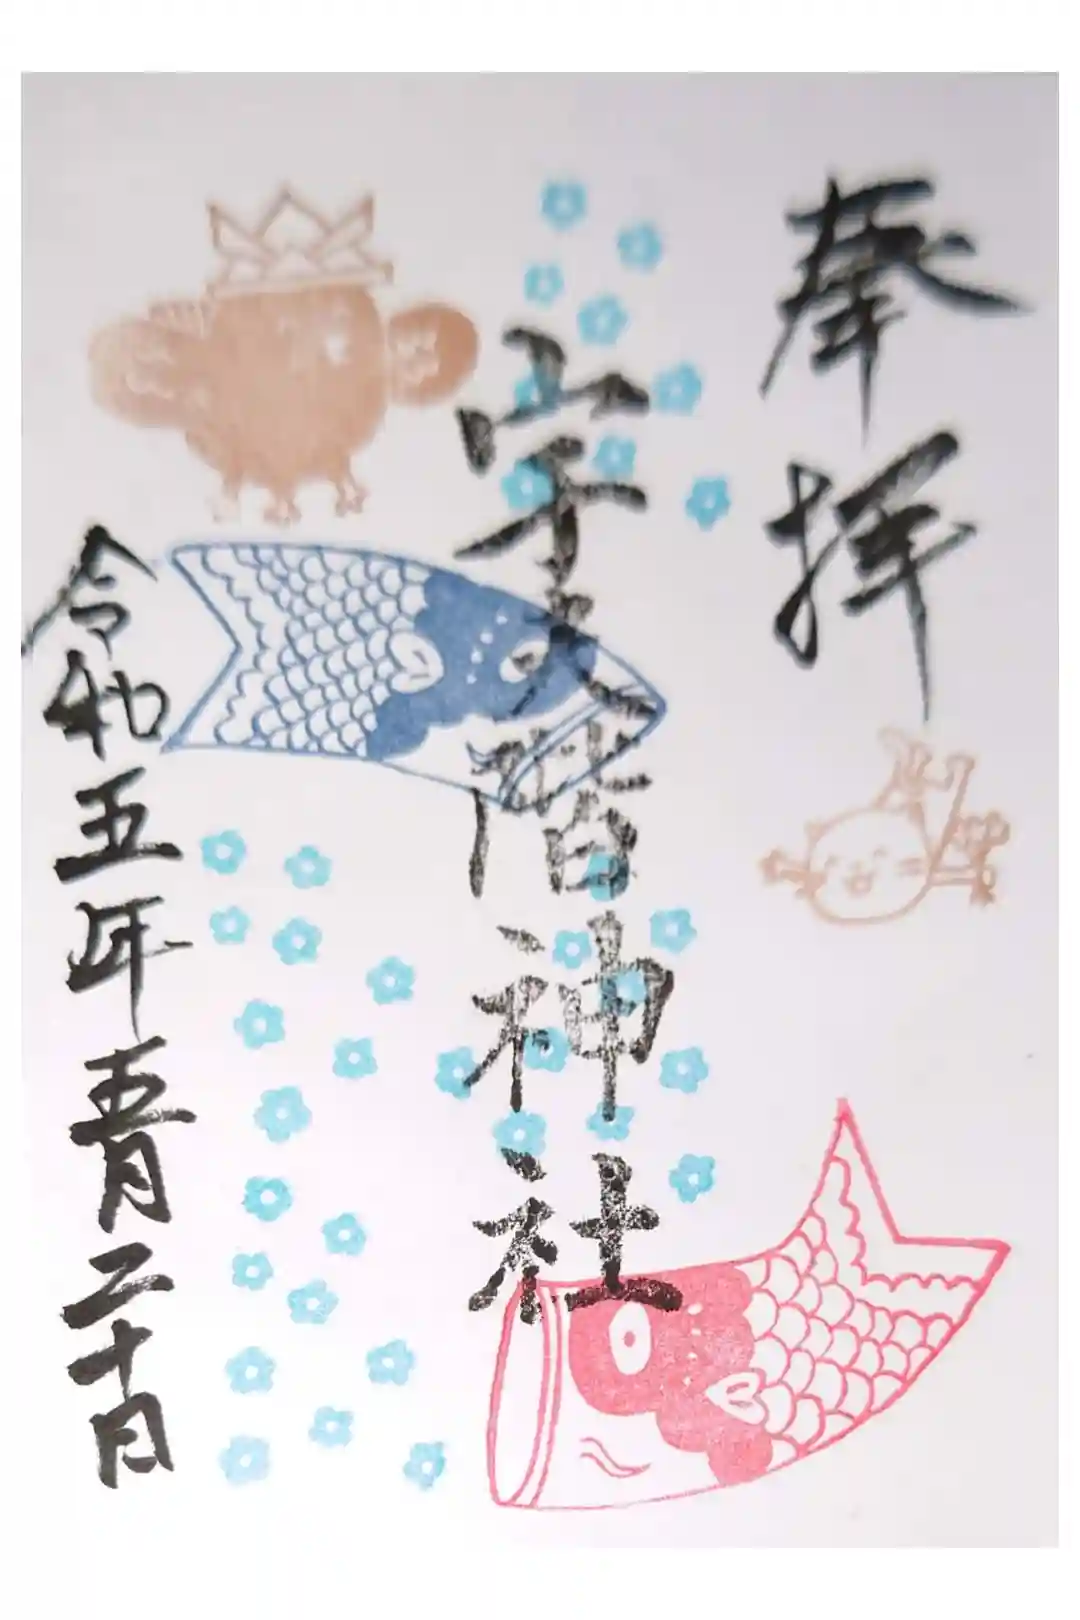 奉拝
宇夫階神社
令和五年五月二十日